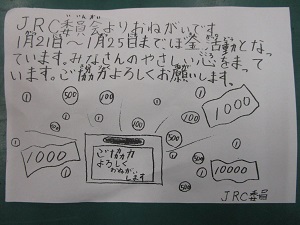 JRC委員会よりおねがいです
1月21日～1月25日までぼ金活動となっ
ています。みなさんのやさしい心をまって
います。ご協力よろしくお願いします。
1 500 100 1 500 1
1 100 1000
1 1
1000 1 ご協力 1 10000
よろしく
おねがい
します
500 500
JRC委員